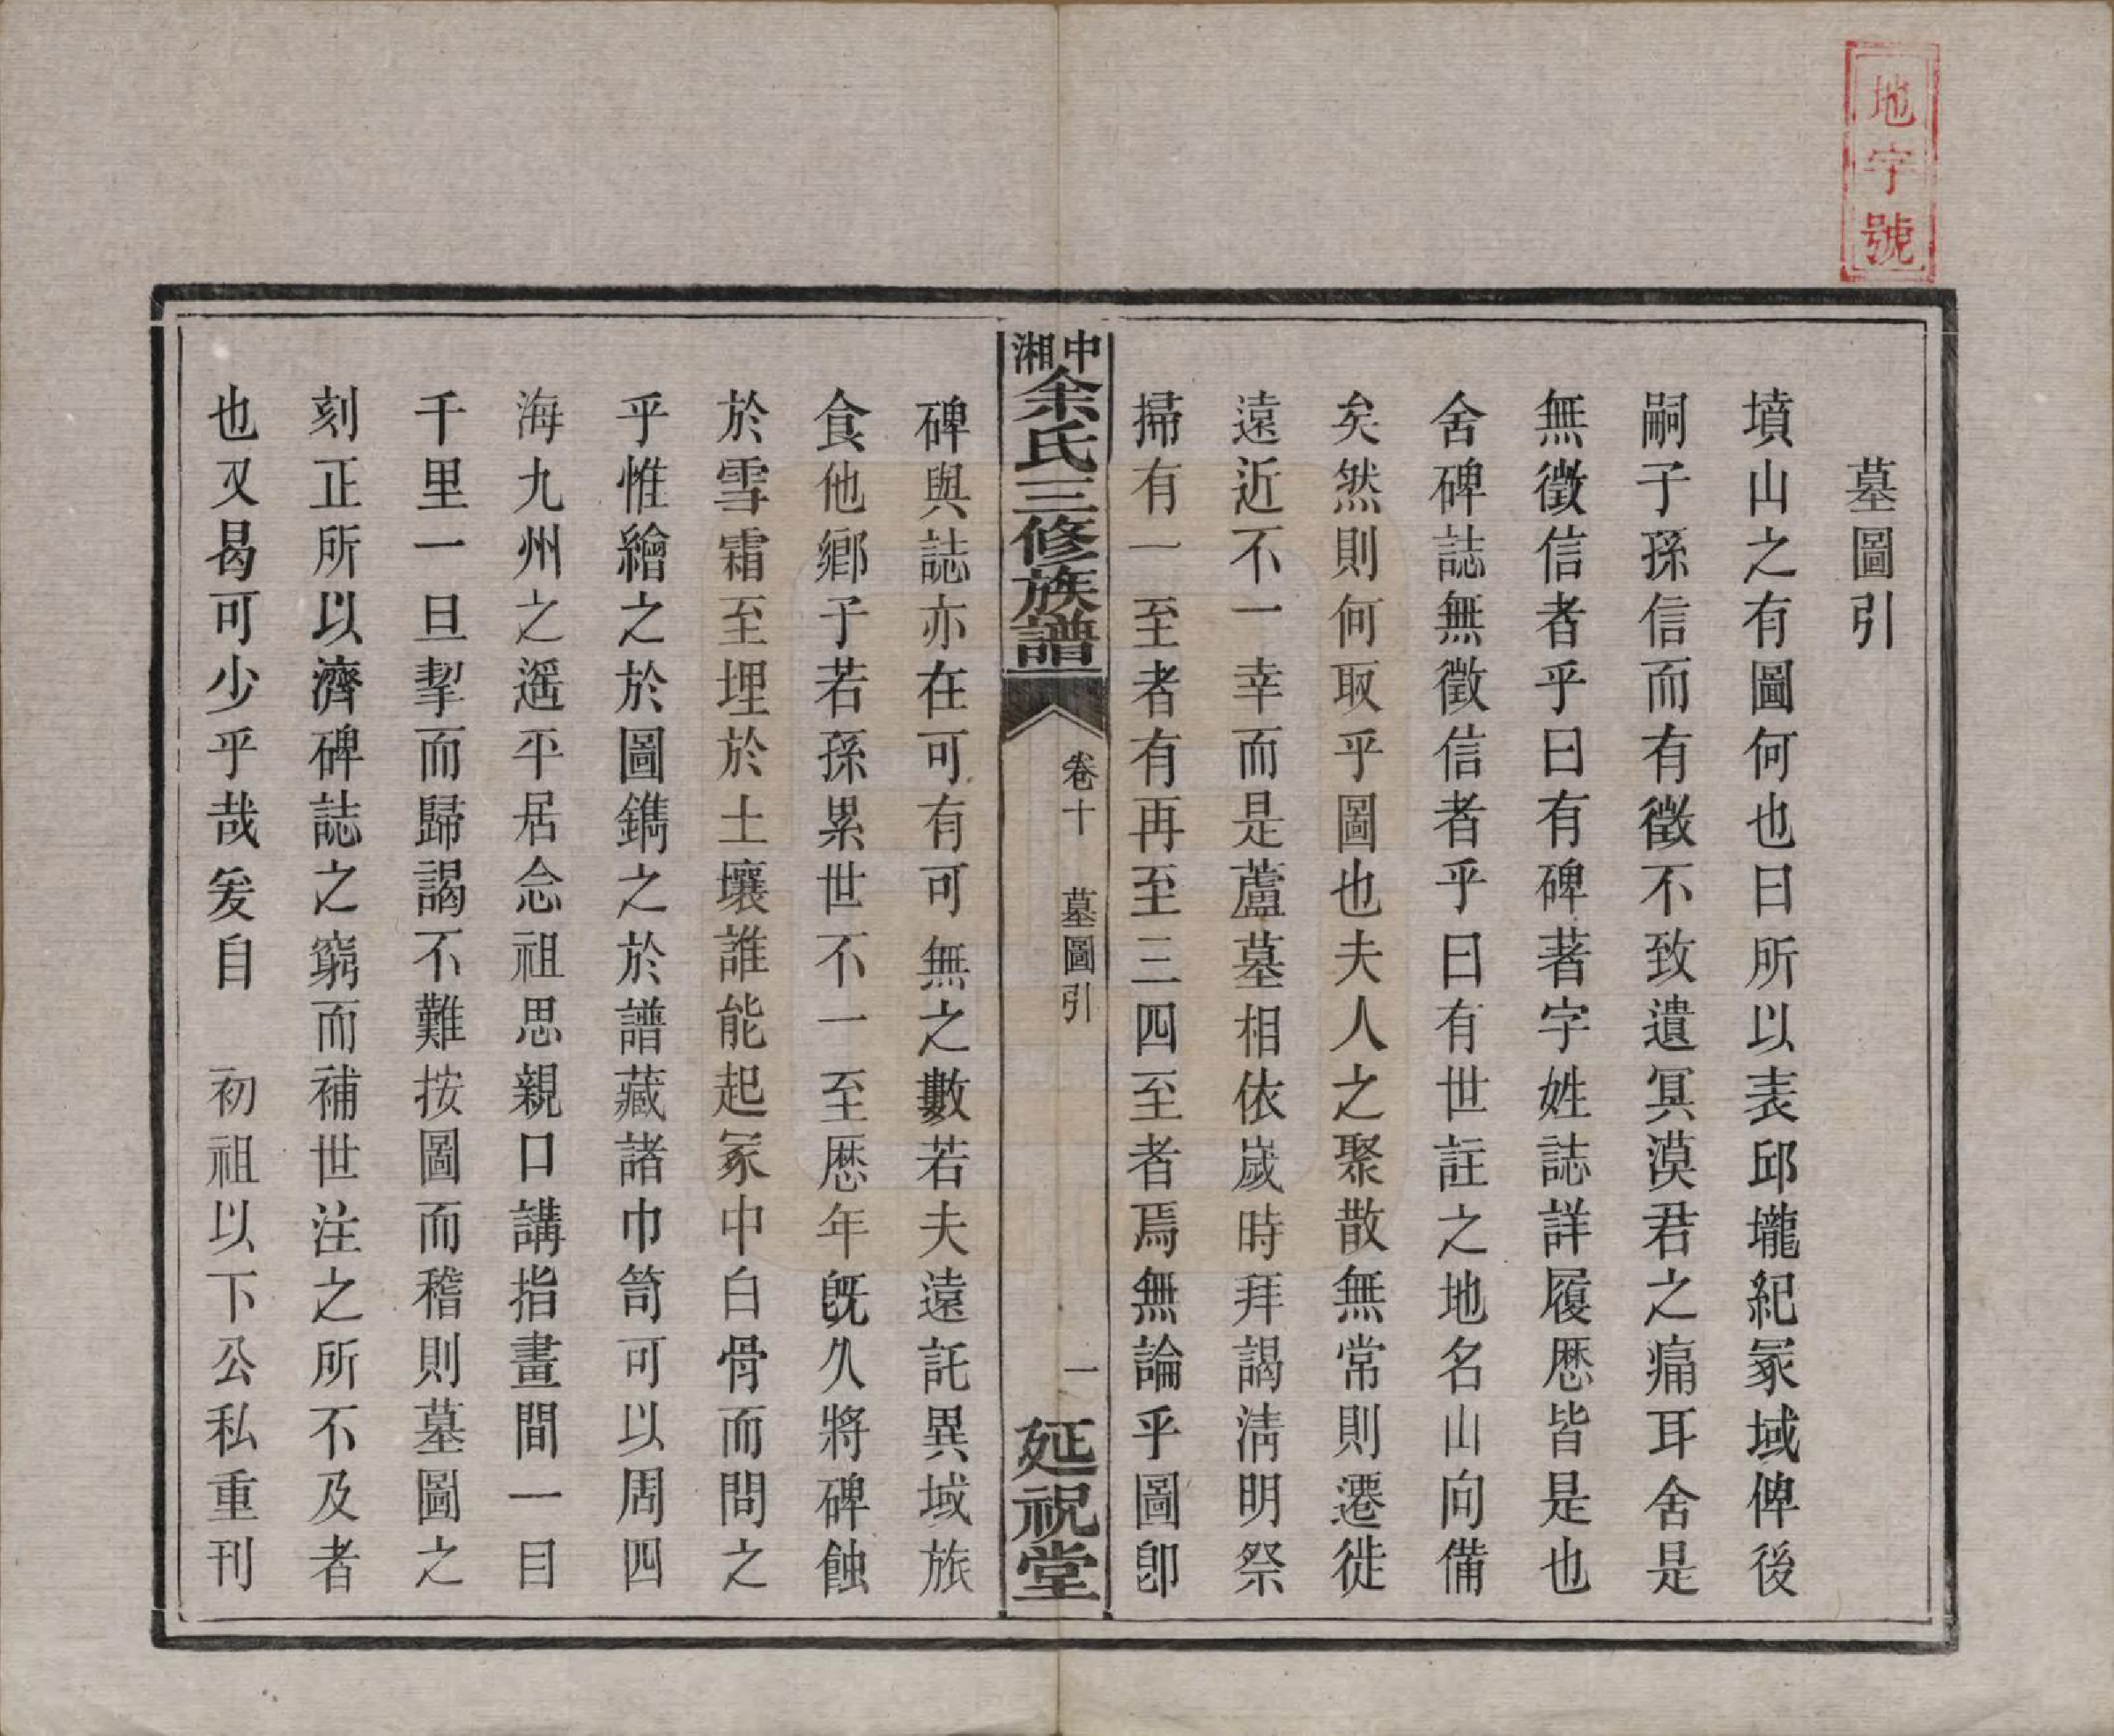 地字號
墓圖引
墳山之有圖何也曰所以表邱壠紀冢域俾後
嗣子孫信而有徵不致遺冥漠君之痛耳舍是
無徵信者乎曰有碑著字姓誌詳履歷皆是也
舍碑誌無徵信者乎曰有世註之地名山向備
矣然則何取乎圖也夫人之聚散無常則遷徙
遠近不一幸而是蘆墓相依歲時拜謁淸明祭
掃有一至者有再至三四至者焉無論乎圖卽
中湘余氏三修族譜
卷十 墓圖引
一
延祝堂
碑與誌亦在可有可無之數若夫遠託異域旅
食他鄉子若孫累世不一至歷年旣久將碑蝕
於雪霜至埋於土壤誰能起冢中白骨而問之
乎惟繪之於圖鐫之於譜藏諸巾笥可以周四
海九州之遥平居念祖思親口講指畫間一目
千里一旦挈而歸謁不難按圖而稽則墓圖之
刻正所以濟碑誌之窮而補世注之所不及者
也又曷可少乎哉爰自 初祖以下公私重刊